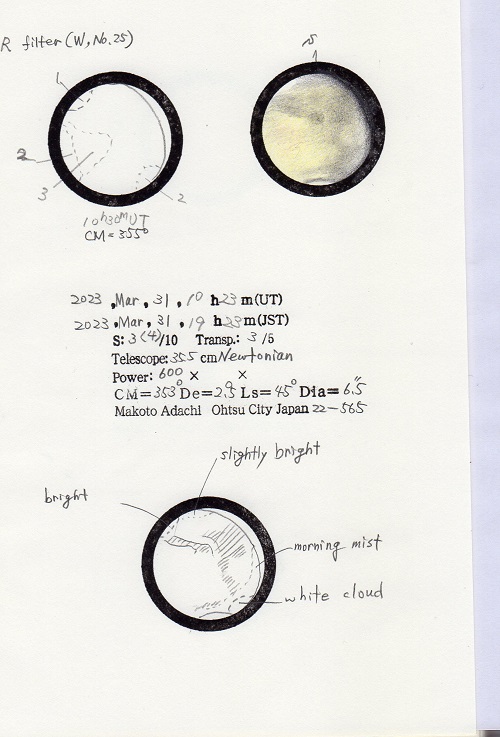 R filter (W, No. 25)
S
1
2
3
2
10h30m UT
CM = 355°
2023 , Mar , 31 , 10 h 23 m (UT)
2023 , Mar , 31 , 19 h 23 m (JST)
S: 3 (4) /10 Transp.: 3 /5
Telescope: 355 cm Newtonian
Power: 600 × ×
CM=353° De=2.9° Ls=45° Dia=6.5"
Makoto Adachi Ohtsu City Japan 22-565
slightly bright
bright
morning mist
white cloud